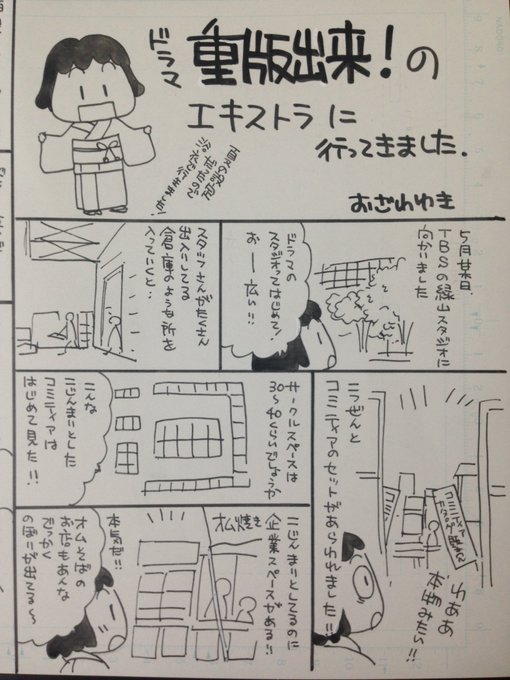 ドラマ
重版出来!の
エキストラに
行ってきました.
おざわゆき
5月某日.
TBSの緑山スタジオに
向かいました
ドラマの
スタジオってはじめて!
お――広い!!
スタッフさんがたくさん
出入りしてる
倉庫のような所を
入っていくと…
こつぜんと
コミティアのセットがあらわれました!!
わああ
本物みたい!!
サークルスペースは
30〜40くらいでしょうか
こんな
こじんまりとした
コミティアは
はじめて見た!!
こじんまりとしてるのに
企業スペースがある!!
オム焼き
本気だ!!!
オムそばの
お店もあんな